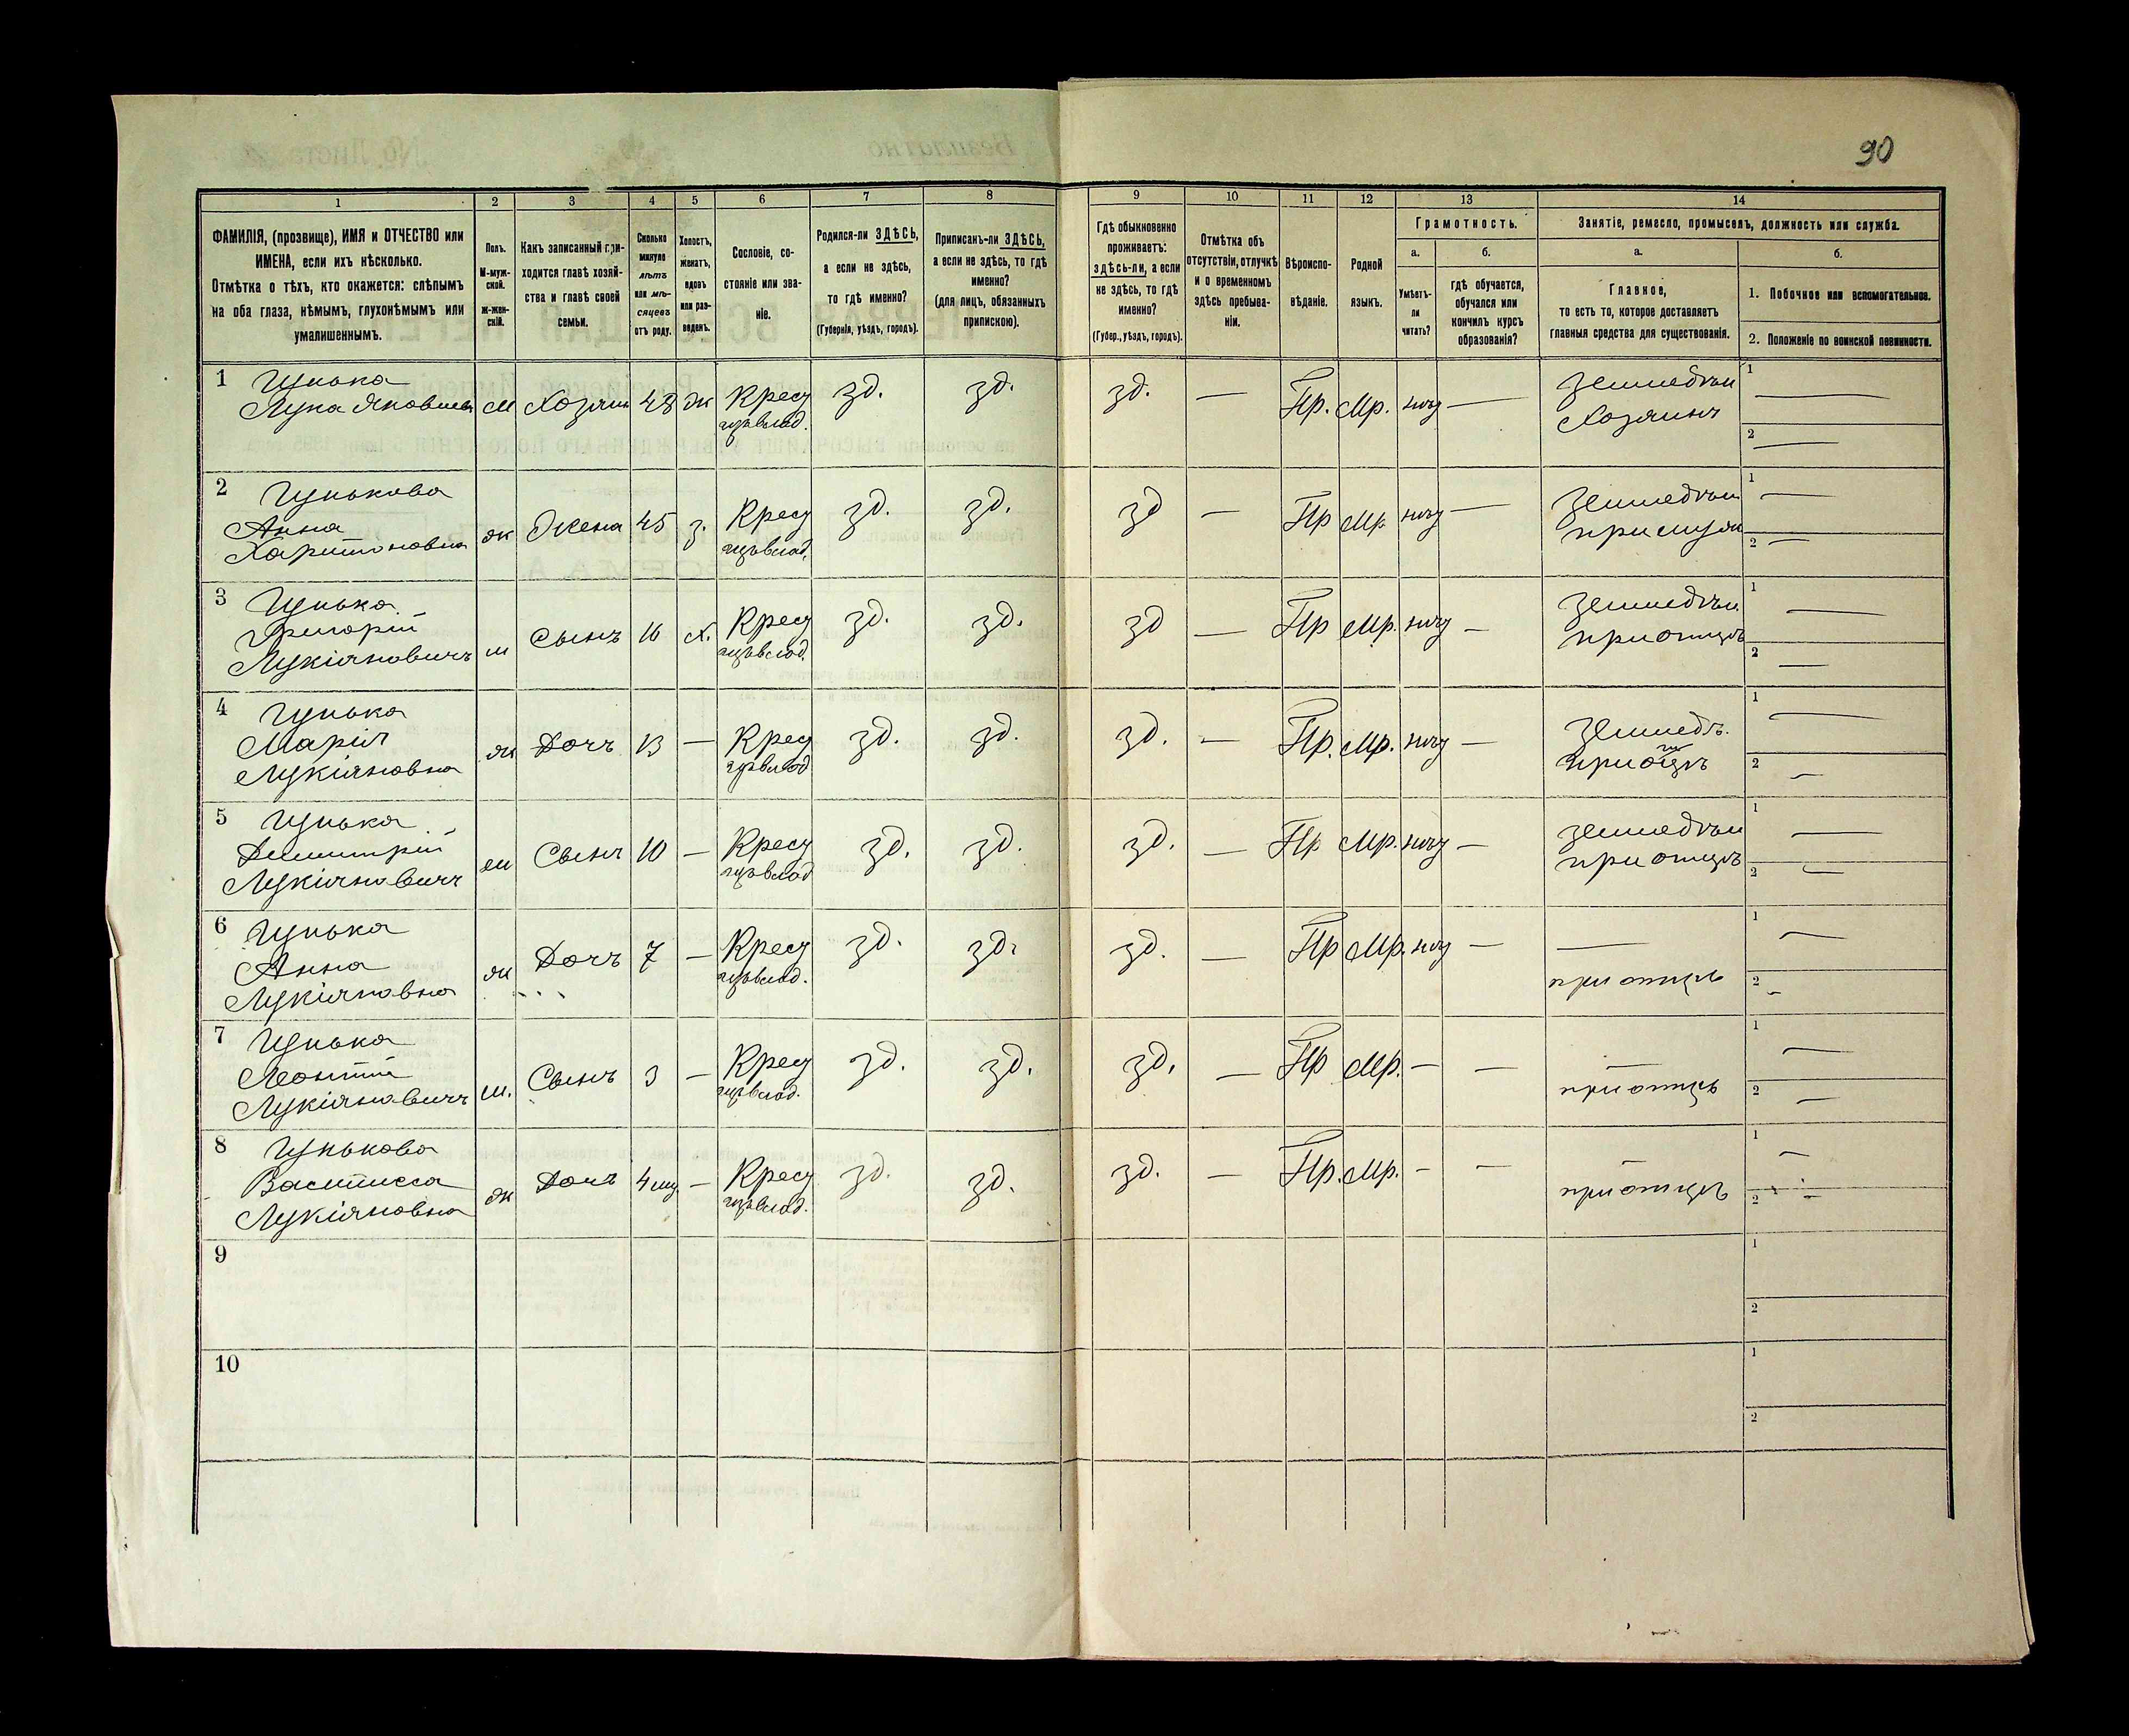 90
1
2
3
4
5
6
7
8
9
10
11
12
13
14
ФАМИЛІЯ, (прозвище), ИМЯ и ОТЧЕСТВО или
ИМЕНА, если ихъ нѣсколько.
Отмѣтка о тѣхъ, кто окажется: слѣпымъ
на оба глаза, нѣмымъ, глухонѣмымъ или
умалишеннымъ.
Полъ.
М-муж-
ской.
ж-жен-
скій.
Какъ записанный при-
ходится главѣ хозяй-
ства и главѣ своей
семьи.
Сколько
минуло
лѣтъ
или мѣ-
сяцевъ
отъ роду.
Холостъ,
женатъ,
вдовъ
или раз-
веденъ.
Сословіе, со-
стояніе или зва-
ніе.
Родился-ли ЗДѢСЬ,
а если не здѣсь,
то гдѣ именно?
(Губернія, уѣздъ, городъ).
Приписанъ-ли ЗДѢСЬ,
а если не здѣсь, то гдѣ
именно?
(для лицъ, обязанныхъ
припискою).
Гдѣ обыкновенно
проживаетъ:
здѣсь-ли, а если
не здѣсь, то гдѣ
именно?
(Губер., уѣздъ, городъ).
Отмѣтка объ
отсутствіи, отлучкѣ
и о временномъ
здѣсь пребыва-
ніи.
Вѣроиспо-
вѣданіе.
Родной
языкъ.
Грамотность.
а.
Умѣетъ-
ли
читать?
б.
гдѣ обучается,
обучался или
кончилъ курсъ
образованія?
Занятіе, ремесло, промыселъ, должность или служба.
а.
Главное,
то есть то, которое доставляетъ
главныя средства для существованія.
б.
1. Побочное или вспомогательное.
2. Положеніе по воинской повинности.
1 Гунька
Лука Яковлевъ м Хозяинъ 48 ж Крест зд. зд. зд. — Пр. Мр. — —
Хозяинъ
1 —
2 —
2 Гунькова
Анна
Харитоновна ж Жена 45 з. Крест зд. зд. зд — Пр Мр. —
1 —
2 —
3 Гунька
Григорій
Лукіяновичъ м Сынъ 16 х. Крест зд. зд. зд — Пр Мр. —
при отцѣ
1 —
2 —
4 Гунька
Марія
Лукіяновна ж Дочь 13 — Крест зд. зд. зд. — Пр. Мр. —
Земледѣ.
при отцѣ
1 —
2 —
5 Гунька
Димитрій
Лукіяновичъ м Сынъ 10 — Крест зд. зд. зд. — Пр Мр. —
при отцѣ
1 —
2 —
6 Гунька
Анна
Лукіяновна ж Дочь 7 — Крест зд. зд. зд. — Пр Мр. —
—
при отцѣ
1 —
2 —
7 Гунька
Леонтій
Лукіяновичъ м. Сынъ 3 — Крест зд. зд. зд. — Пр Мр. — —
—
при отцѣ
1 —
2 —
8 Гунькова
Василисса
Лукіяновна ж Дочь 4 — Крест зд. зд. зд. — Пр. Мр. — —
—
при отцѣ
1 —
2 —
9
1
2
10
1
2